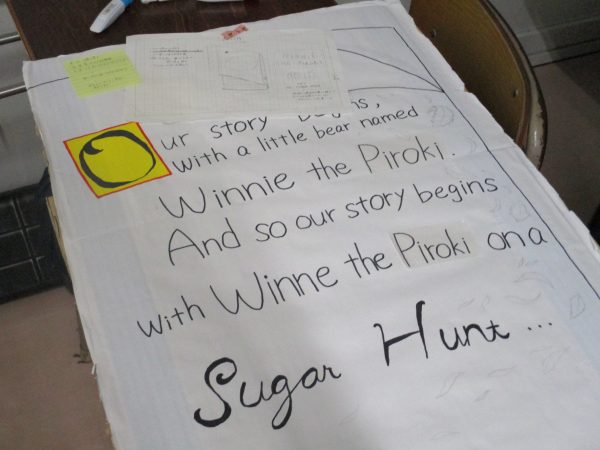 Our story begins,
With a little bear named
Winnie the Piroki.
And so our story begins
with Winne the Piroki on a
Sugar Hunt...